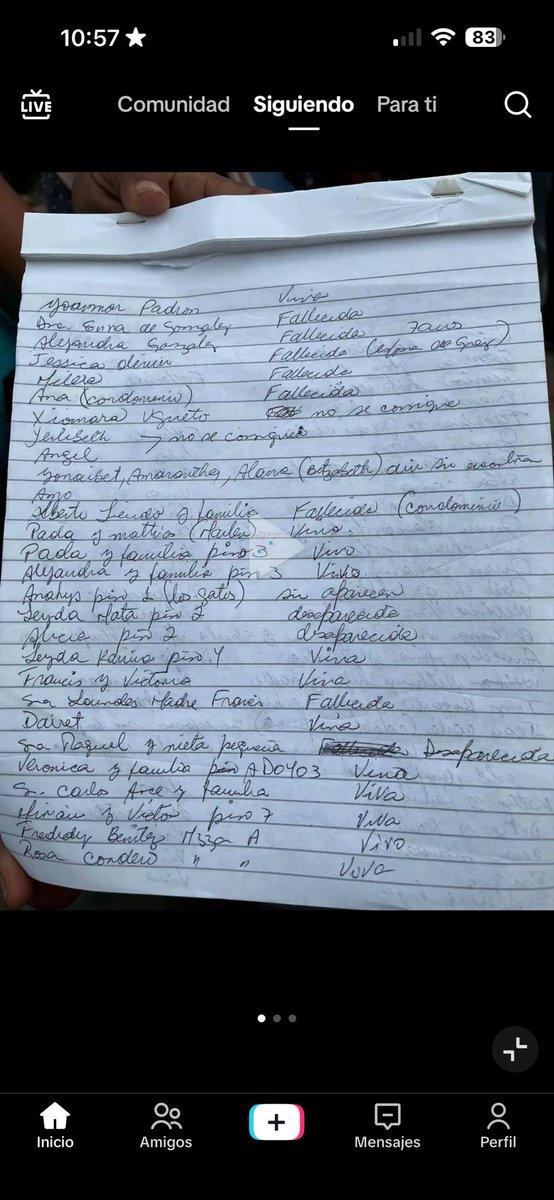 10:57
83
LIVE
Comunidad Siguiendo Para ti
Padron Viva
Ana de Gonzalez Fallecida
Alejandra Gonzalez Fallecida 7 años
Jessica Fallecida
Fallecida
Ana (condominio) Fallecida
Xiomara no se consigue
Yerliseth no se consigue
Angel
Amarantha, Alana
Alberto y familia Fallecida (condominio)
Pada y mattias (Marlen) Vivo.
Pada y familia piso 3 Vivo
Alejandra y familia piso 3 Vivo.
Anahys piso 2 (los gatos) sin aparecer
Leyda Mata piso 2 desaparecida
Alicia piso 2 desaparecida
Leyda Karina piso 4 Viva
Francis y Victoria Viva
Sra Lourdes Madre Fallecida
Dairet Viva
Sra Raquel y nieta pequeña Desaparecida
Veronica y familia AD0403 Viva
Sr. Carlos Arce y familia Viva
y Victor piso 7 Viva
Benitez A Vivo
Rosa Cordero " " Viva
Inicio Amigos Mensajes Perfil